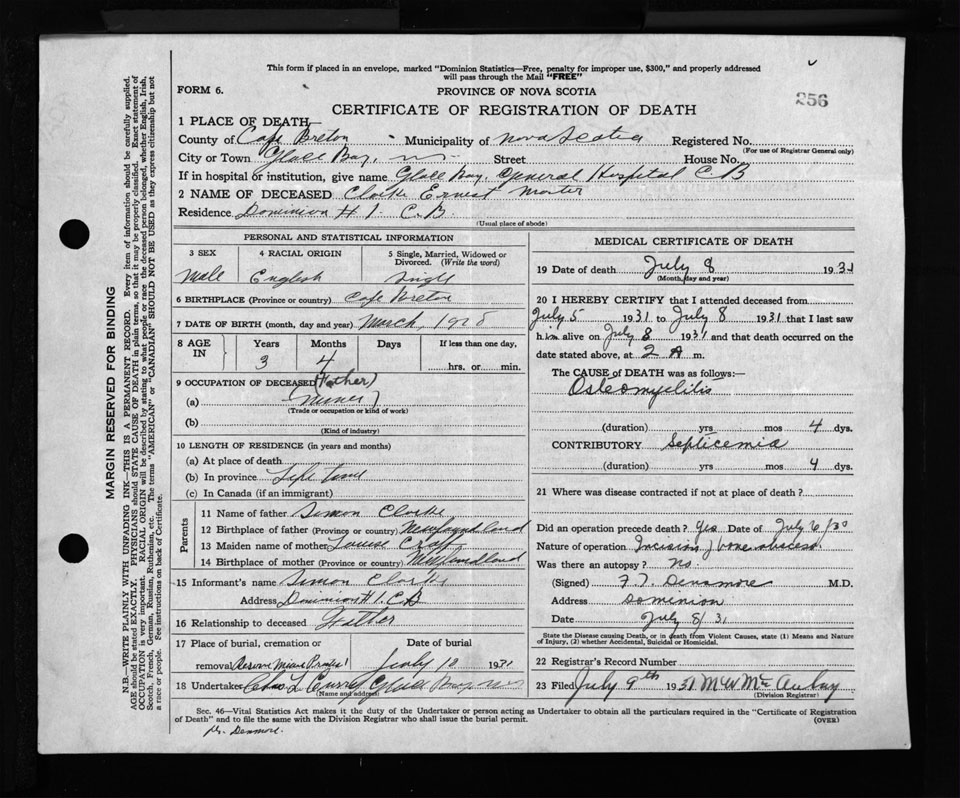 This form if placed in an envelope, marked "Dominion Statistics—Free, penalty for improper use, $300," and properly addressed
will pass through the Mail "FREE"
FORM 6.
PROVINCE OF NOVA SCOTIA
256
CERTIFICATE OF REGISTRATION OF DEATH
1 PLACE OF DEATH
County of Cape Breton Municipality of Nova Scotia Registered No.
(For use of Registrar General only)
City or Town Glace Bay, Street House No.
If in hospital or institution, give name Glace Bay, General Hospital C B
2 NAME OF DECEASED Clarke Ernest
Residence Dominion # 1. C.B.
(Usual place of abode)
PERSONAL AND STATISTICAL INFORMATION
3 SEX 4 RACIAL ORIGIN 5 Single, Married, Widowed or
Divorced. (Write the word)
Male English Single
6 BIRTHPLACE (Province or country) Cape Breton
7 DATE OF BIRTH (month, day and year) March, 1928
8 AGE IN Years Months Days If less than one day,
3 4 hrs. or min.
9 OCCUPATION OF DECEASED (Father)
(a) Miner
(Trade or occupation or kind of work)
(b)
(Kind of industry)
10 LENGTH OF RESIDENCE (in years and months)
(a) At place of death
(b) In province Life time
(c) In Canada (if an immigrant)
Parents
11 Name of father Simon Clarke
12 Birthplace of father (Province or country) Newfoundland
13 Maiden name of mother Louise
14 Birthplace of mother (Province or country) Newfoundland
15 Informant's name Simon Clarke
Address Dominion # 1. C B
16 Relationship to deceased Father
17 Place of burial, cremation or Date of burial
removal Reserve Mines July 1931
18 Undertaker Chas L Curry Glace Bay
(Name and address)
MEDICAL CERTIFICATE OF DEATH
19 Date of death July 8 1931
(Month, day and year)
20 I HEREBY CERTIFY that I attended deceased from
July 5 1931 to July 8 1931 that I last saw
him alive on July 8 1931 and that death occurred on the
date stated above, at 2 A m.
The CAUSE of DEATH was as follows:
Osteomyelitis
(duration) yrs mos 4 dys.
CONTRIBUTORY Septicemia
(duration) yrs mos 4 dys.
21 Where was disease contracted if not at place of death?
Did an operation precede death? yes Date of July 6/30
Nature of operation Incision of bone abscess
Was there an autopsy? No.
(Signed) F. T. Densmore M.D.
Address Dominion
Date July 8/31
State the Disease causing Death, or in death from Violent Causes, state (1) Means and Nature
of Injury, (2) whether Accidental, Suicidal or Homicidal.
22 Registrar's Record Number
23 Filed July 9th 1931 M W McAulay
(Division Registrar)
Sec. 46—Vital Statistics Act makes it the duty of the Undertaker or person acting as Undertaker to obtain all the particulars required in the "Certificate of Registration
of Death" and to file the same with the Division Registrar who shall issue the burial permit.
(OVER)
Dr. Densmore.
MARGIN RESERVED FOR BINDING
N.B.—WRITE PLAINLY WITH UNFADING INK—THIS IS A PERMANENT RECORD. Every item of information should be carefully supplied.
AGE should be stated EXACTLY. PHYSICIANS should STATE CAUSE OF DEATH in plain terms, so that it may be properly classified. Exact statement of
OCCUPATION is very important. RACIAL ORIGIN will be described by stating to what people or race the deceased person belonged, whether English, Irish,
Scotch, French, German, Russian, Ruthenian, etc. The terms "AMERICAN" or "CANADIAN" SHOULD NOT BE USED as they express citizenship but not
a race or people. See instructions on back of Certificate.